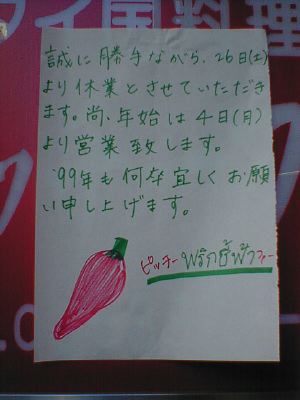 タイ国料理
誠に勝手ながら、26日(土)
より休業とさせていただき
ます。尚、年始は4日(月)
より営業致します。
'99年も何卒宜しくお願
い申し上げます。
ピッチー พริกชี้ฟ้า ファー